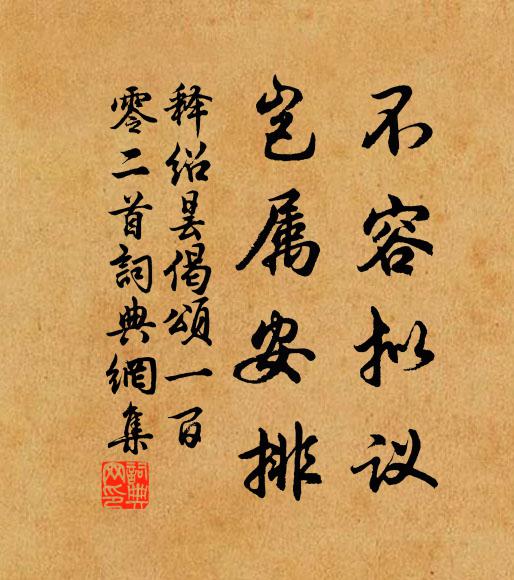 不容拟议
岂属安排
释绍昙偈頌一百
零二首詞典網集
詞典网印